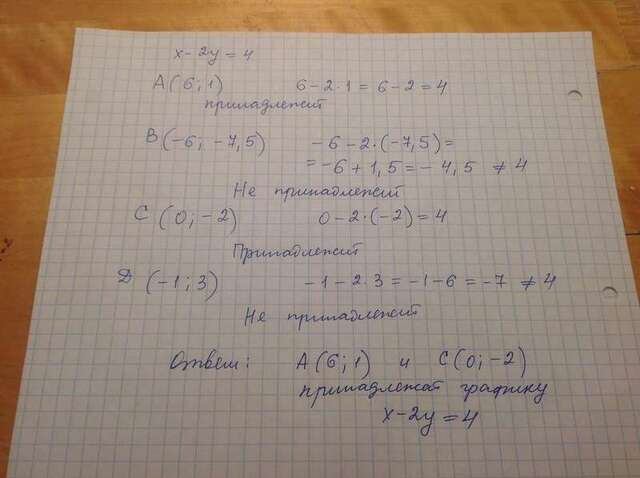 x - 2y = 4
А (6; 1) 6 - 2 · 1 = 6 - 2 = 4
принадлежит
В (-6; -7,5) -6 - 2 · (-7,5) =
= -6 + 1,5 = -4,5 ≠ 4
Не принадлежит
С (0; -2) 0 - 2 · (-2) = 4
Принадлежит
Д (-1; 3) -1 - 2 · 3 = -1 - 6 = -7 ≠ 4
Не принадлежит
Ответ: А (6; 1) и С (0; -2)
принадлежат графику
x - 2y = 4